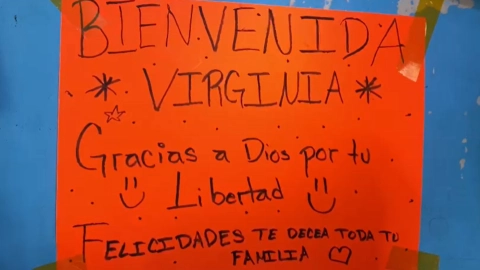 BIENVENIDA
* VIRGINIA *
Gracias a Dios por tu
Libertad
FELICIDADES TE DECEA TODA TU
FAMILIA